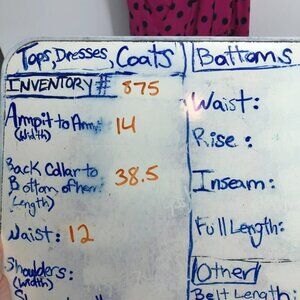 Tops, Dresses, Coats
INVENTORY# 875
Armpit to Armpit 14
(Width)
Back Collar to
Bottom of hem: 38.5
(Length)
Waist: 12
Shoulders:
(Width)
Bottoms
Waist:
Rise:
Inseam:
Full Length:
Other
Belt Length: